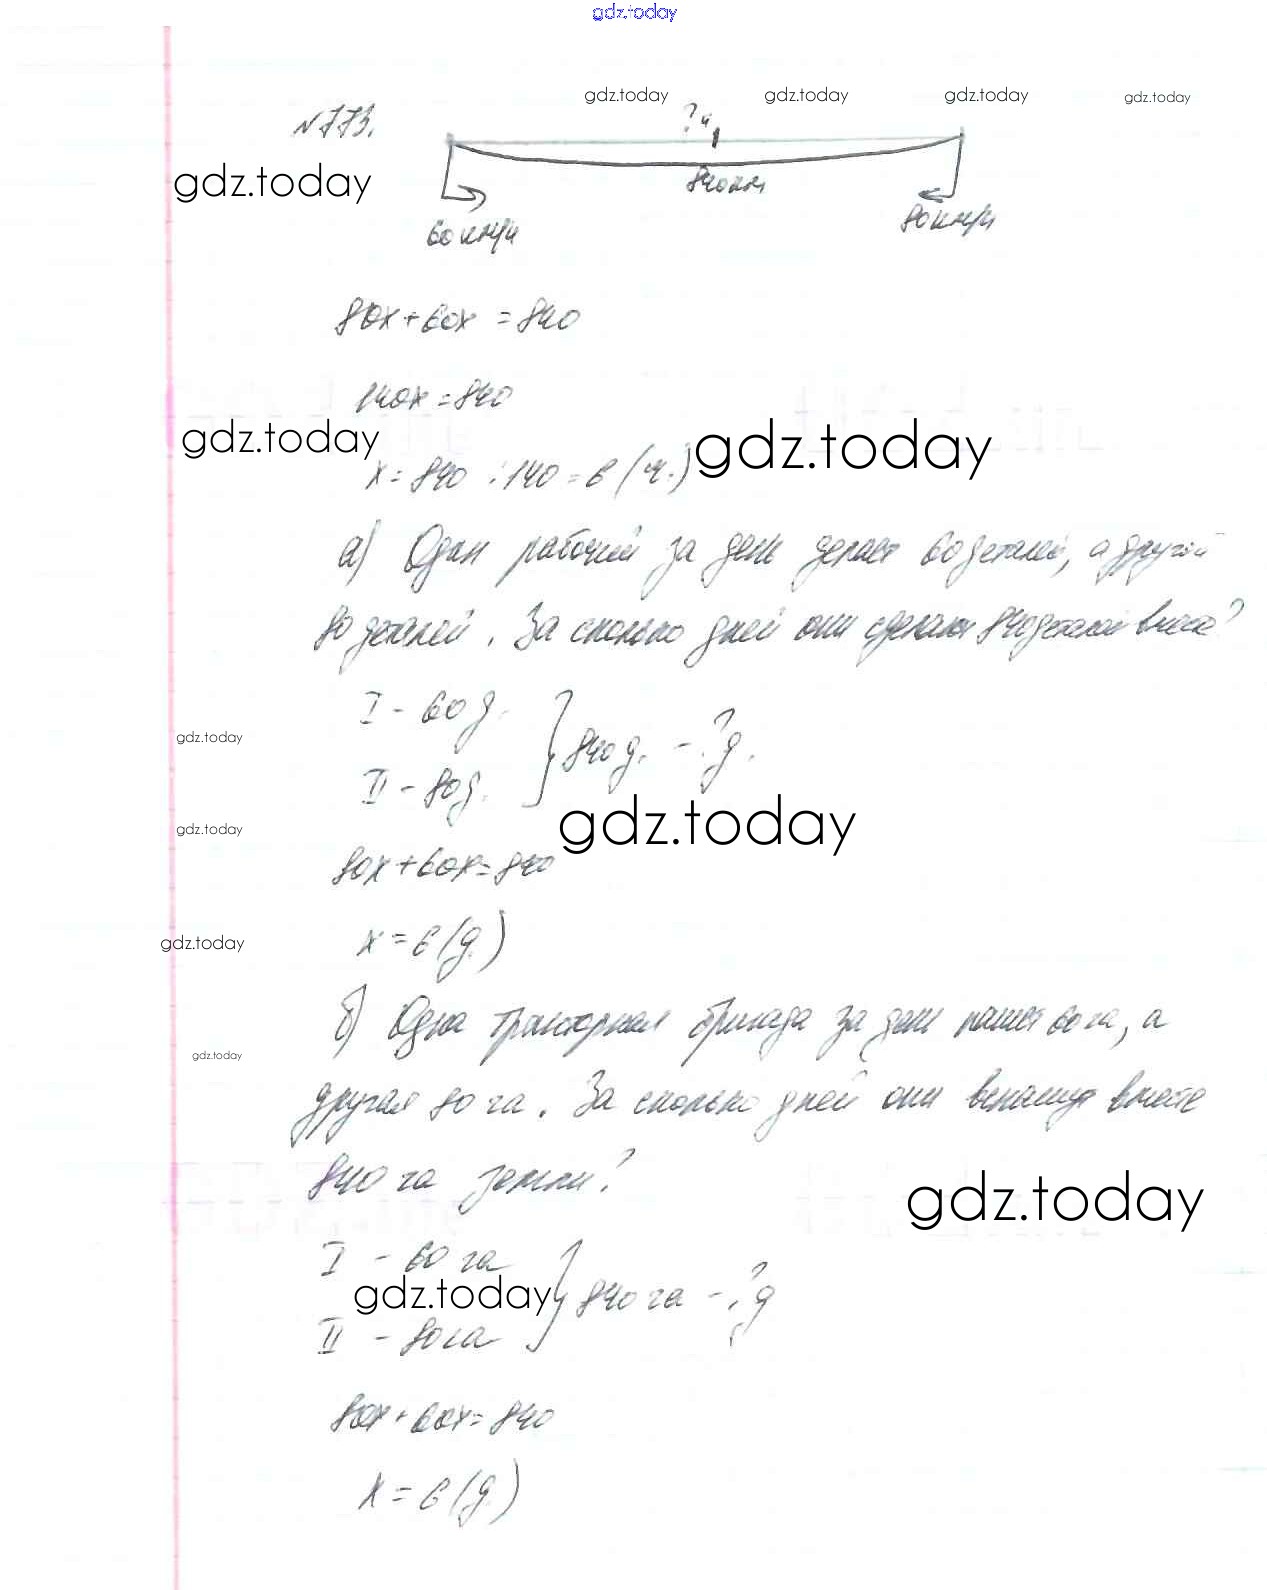 gdz.today
gdz.today gdz.today gdz.today gdz.today
№773.
?ч
gdz.today
840км
60км/ч
80км/ч
80х+60х=840
140х=840
gdz.today
gdz.today
х=840:140=6(ч.)
а) Один рабочий за день делает 60 деталей, а другой
80 деталей. За сколько дней они сделают 840 деталей вместе?
I - 60 д.
gdz.today
840 д. - ? д.
II - 80 д.
gdz.today
gdz.today
80х+60х=840
gdz.today
х=6(д.)
б) Одна тракторная бригада за день пашет 60 га, а
gdz.today
другая 80 га. За сколько дней они вспашут вместе
840 га земли?
gdz.today
I - 60 га
gdz.today
840 га - ? д
II - 80 га
80х+60х=840
х=6(д.)